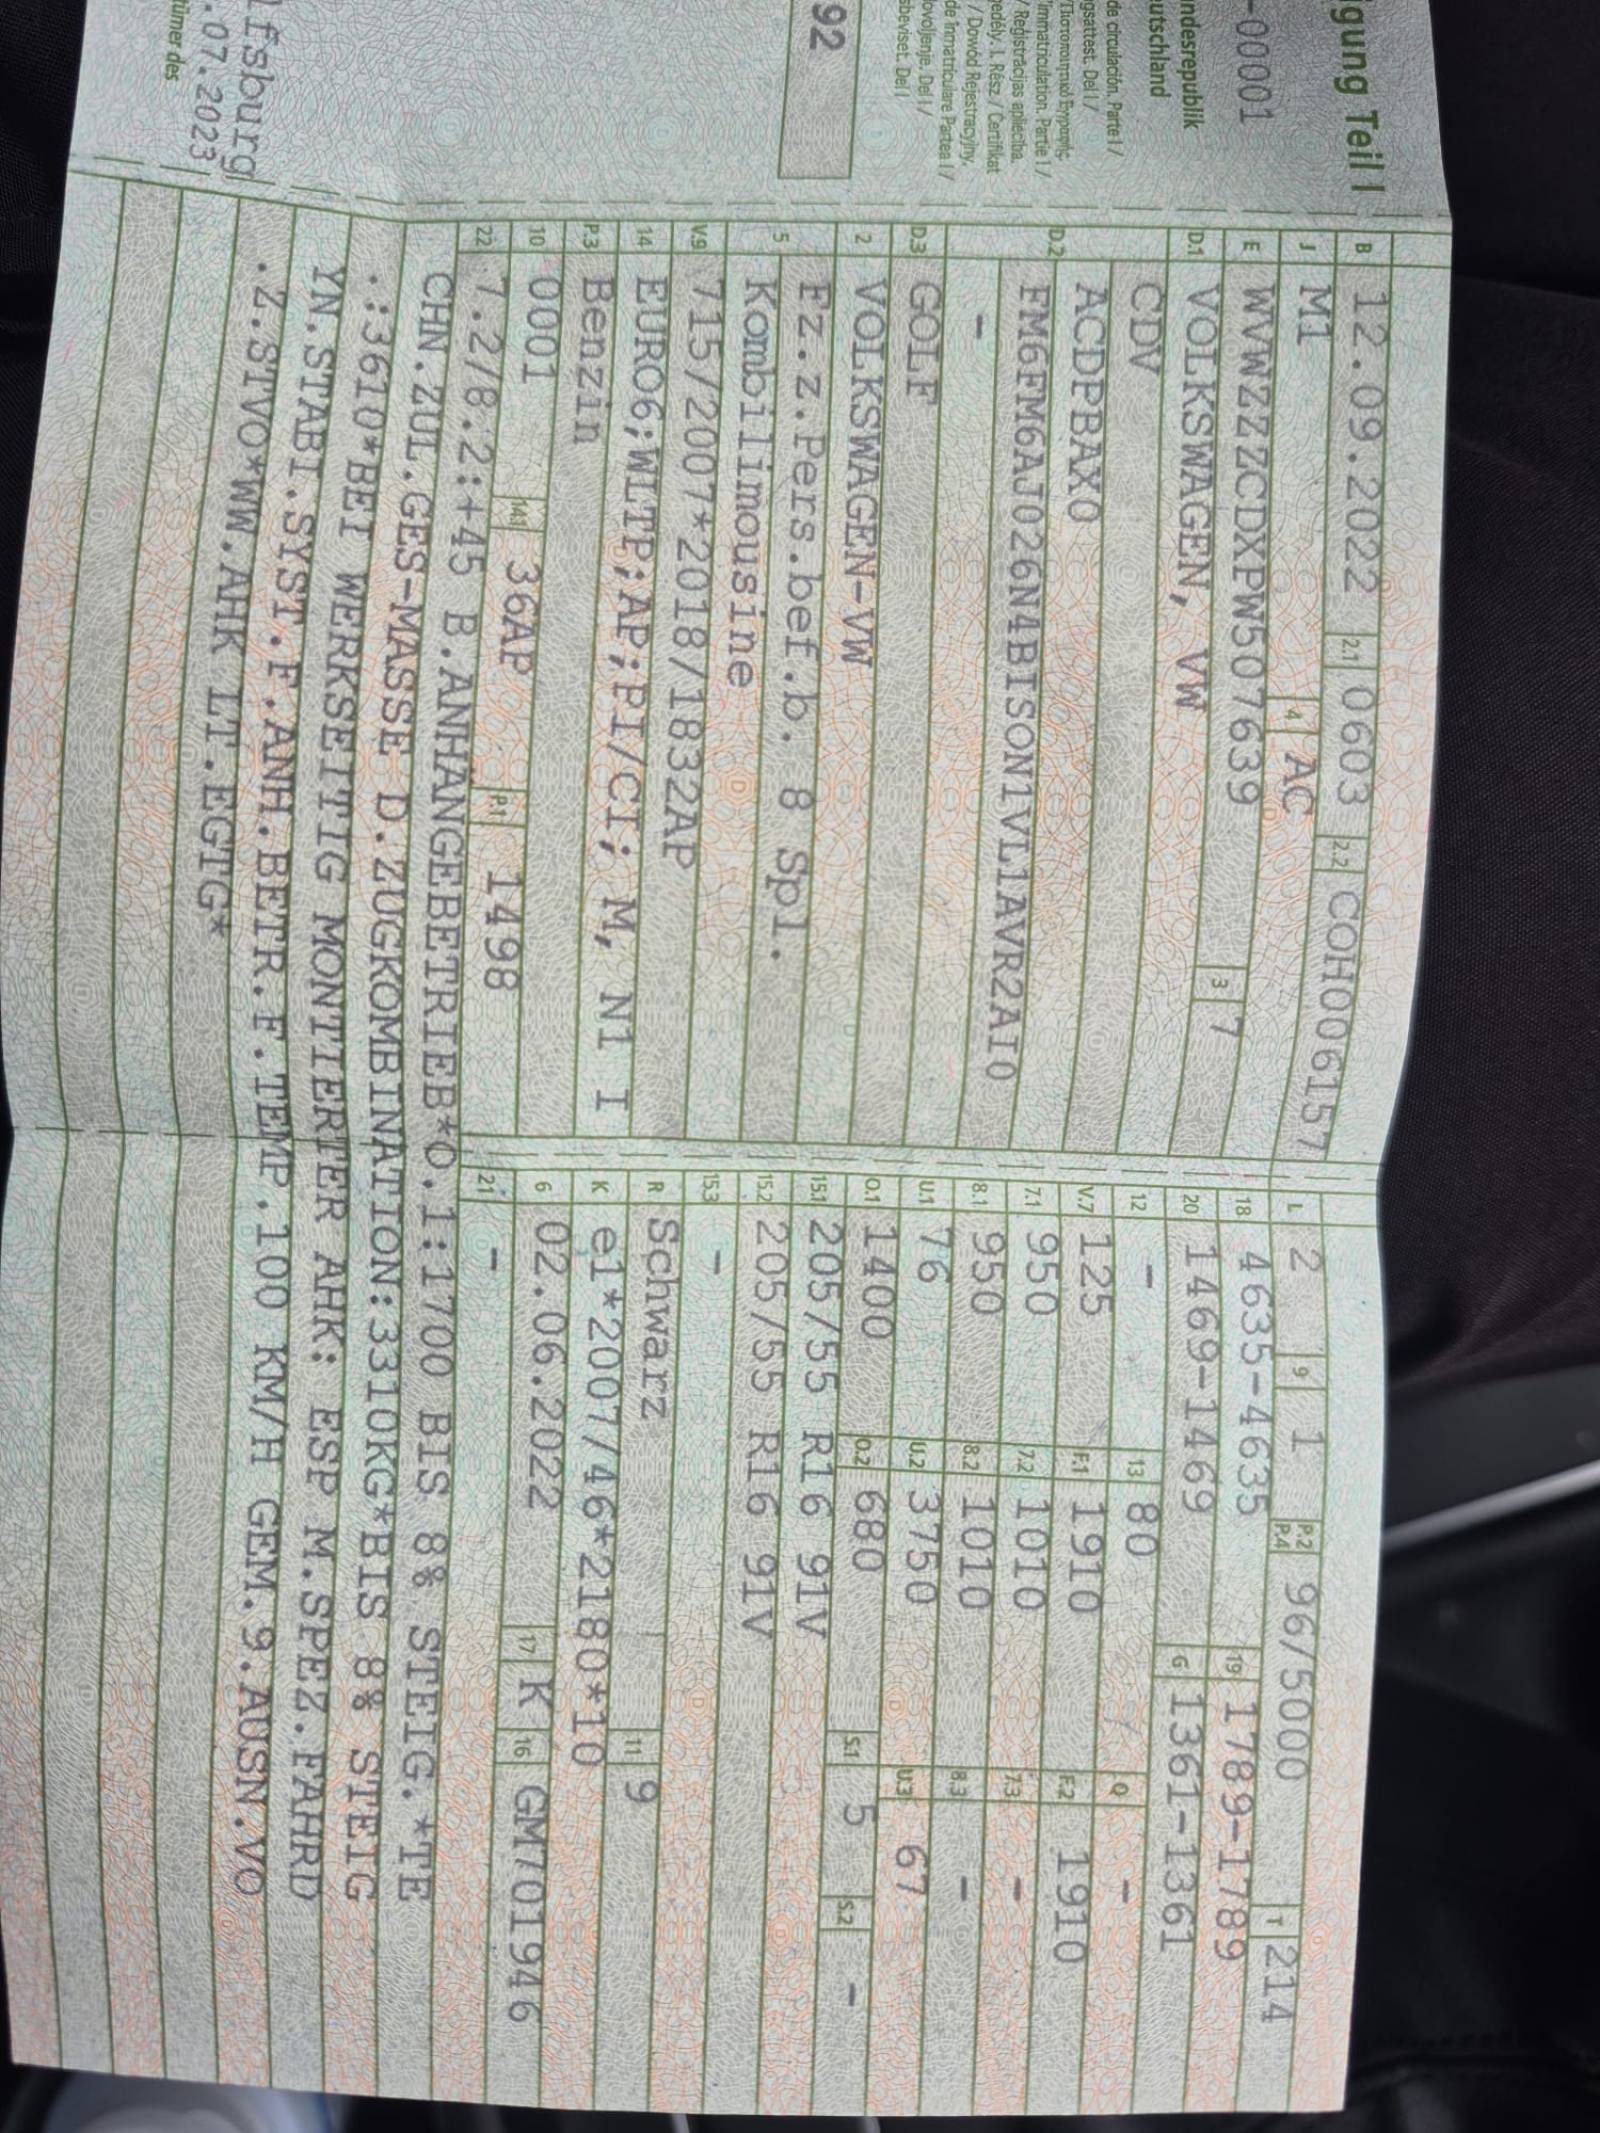 igung Teil I
-00001
ndesrepublik
utschland
de circulación. Parte I /
gsattest. Del I /
immatriculation. Partie I /
/ Reģistrācijas apliecība.
edély. I. Rész. / Ċertifikat
/ Dowód Rejestracyjny.
de înmatriculare Partea I /
dovoljenje. Del I /
sbeviset. Del I
92
lfsburg
.07.2023
tümer des
B 12.09.2022 2.1 0603 2.2 COH006157
J M1 4 AC
E WVWZZZCDXPW507639 3 7
D.1 VOLKSWAGEN, VW
CDV
D.2 ACDPBAX0
FM6FM6AJ026N4BISON1VL1AVR2AI0
-
D.3 GOLF
2 VOLKSWAGEN-VW
5 Fz.z.Pers.bef.b. 8 Spl.
Kombilimousine
V.9 715/2007*2018/1832AP
14 EURO6;WLTP;AP;PI/CI; M, N1 I
P.3 Benzin
10 0001 14.1 36AP P.1 1498
L 2 9 1 P.2 P.4 96/5000 T 214
18 4635-4635 19 1789-1789
20 1469-1469 G 1361-1361
12 - 13 80 Q -
V.7 125 F.1 1910 F.2 1910
7.1 950 7.2 1010 7.3 -
8.1 950 8.2 1010 8.3 -
U.1 76 U.2 3750 U.3 67
O.1 1400 O.2 680 S.1 5 S.2 -
15.1 205/55 R16 91V
15.2 205/55 R16 91V
15.3 -
R Schwarz 11 9
K e1*2007/46*2180*10
6 02.06.2022 17 K 16 GM701946
21 -
22 7.2/8.2:+45 B.ANHÄNGEBETRIEB*O.1:1700 BIS 8% STEIG.*TE
CHN.ZUL.GES-MASSE D.ZUGKOMBINATION:3310KG*BIS 8% STEIG
.:3610*BEI WERKSEITIG MONTIERTER AHK: ESP M.SPEZ.FAHRD
YN.STABI.SYST.F.ANH.BETR.F.TEMP.100 KM/H GEM.9.AUSN.VO
.Z.STVO*WW.AHK LT.EGTG*